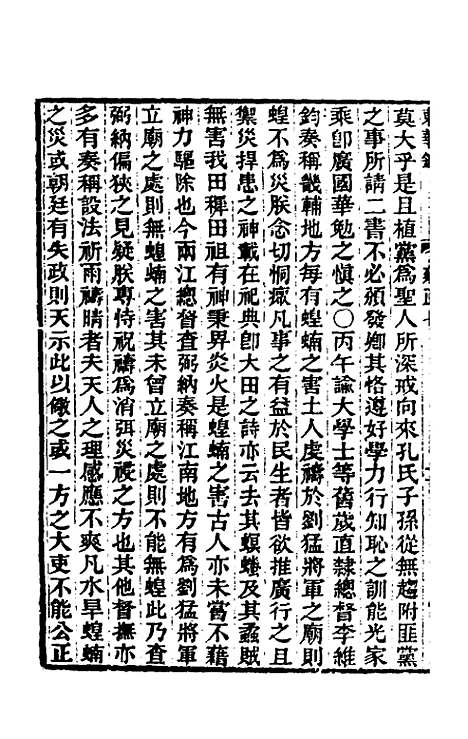 東華錄
雍正七
莫大乎是且植黨爲聖人所深戒向來孔氏子孫從無趨附匪黨
之事所請二書不必頒發鄉其恪遵好學力行知恥之訓能光家
乘卽廣國華勉之愼之〇丙午諭大學士等舊歲直隸總督李維
鈞奏稱畿輔地方每有蝗蝻之害土人虔禱於劉猛將軍之廟則
蝗不爲災朕念切恫瘝凡事之有益於民生者皆欲推廣行之且
禦災捍患之神載在祀典卽大田之詩亦云去其螟螣及其蟊賊
無害我田穉田祖有神秉畀炎火是蝗蝻之害古人亦未嘗不藉
神力驅除也今兩江總督查弼納奏稱江南地方有爲劉猛將軍
立廟之處則無蝗蝻之害其未曾立廟之處則不能無蝗此乃查
弼納偏狹之見疑朕專恃祝禱爲消弭災祲之方也其他督撫亦
多有奏稱設法祈雨禱晴者夫天人之理感應不爽凡水旱蝗蝻
之災或朝廷有失政則天示此以儆之或一方之大吏不能公正